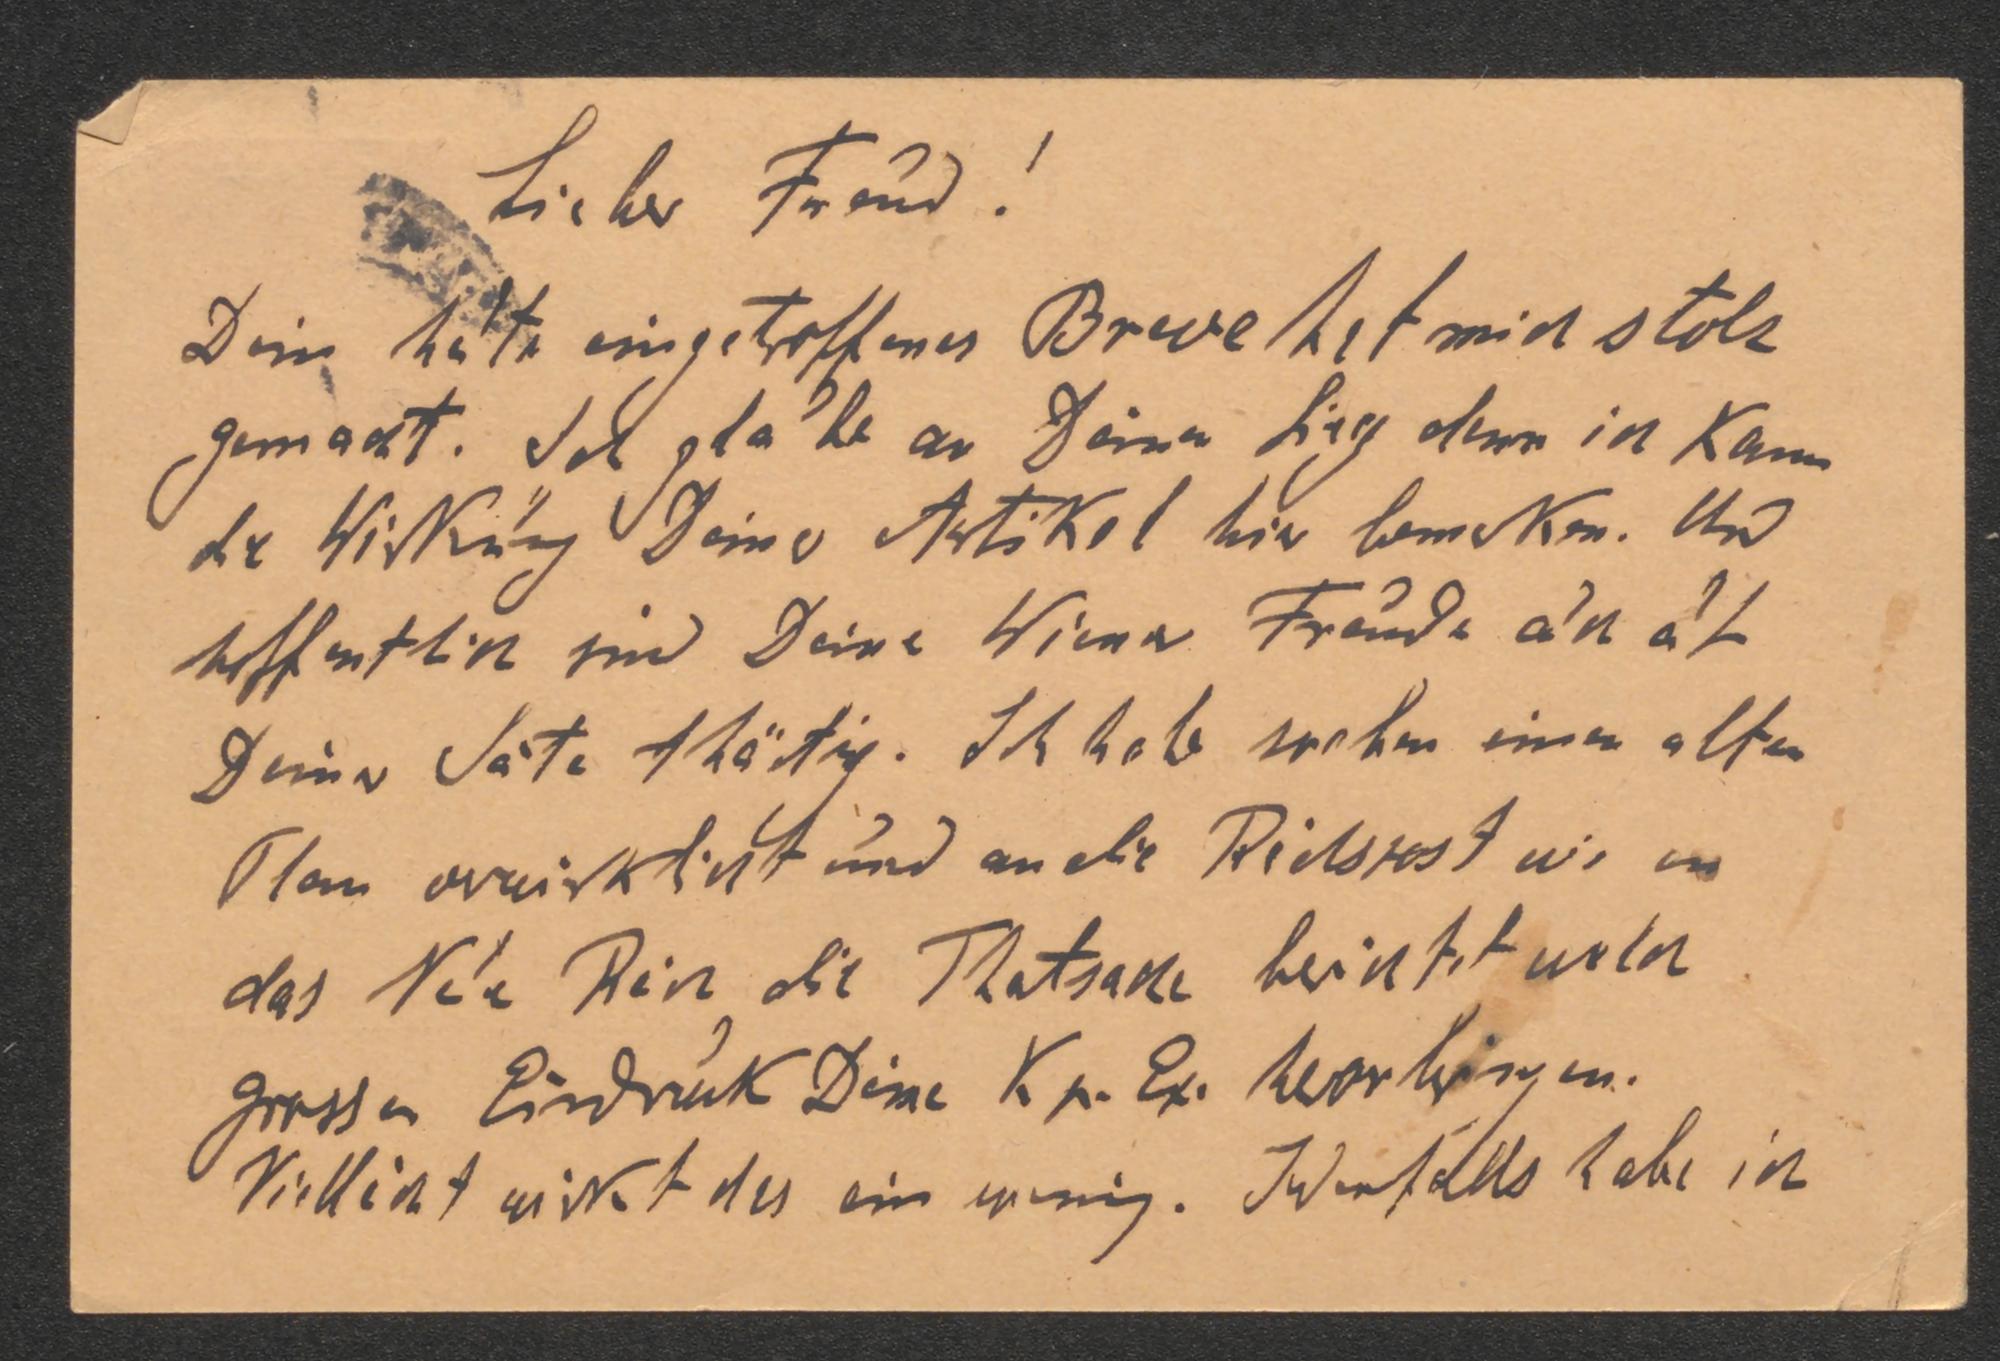 Lieber Freund!
Dein heute eingetroffenes Breve hat mich stolz
gemacht. Ich glaube an Deinen Sieg denn ich kann
die Wirkung Deiner Artikel hier bemerken. Und
hoffentlich sind Deine Wiener Freunde auch auf
Deiner Seite thätig. Ich habe soeben einen alten
Plan verwirklicht und an die Reichspost wie an
das Neue Reich die Thatsache berichtet welch
grossen Eindruck Deine Ex. hervorbringen.
Vielleicht wirkt das ein wenig. Jedenfalls habe ich